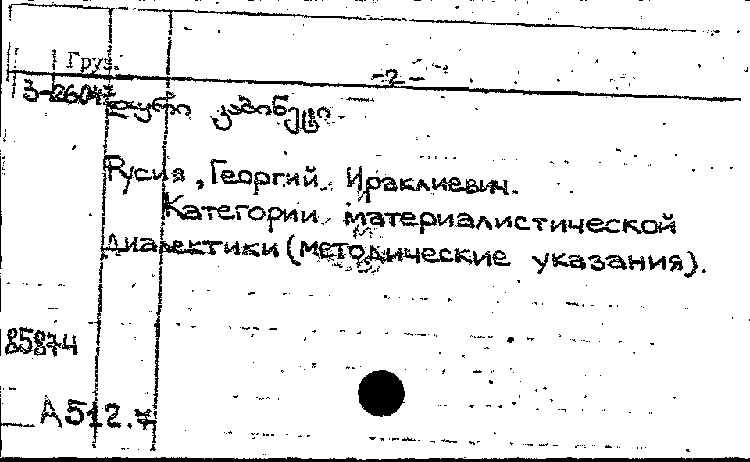 Груз.
-2-
3-26047 კაბინეტი.
Русия, Георгий Ираклиевич.
Категории материалистической
диалектики (методические указания).
85874
А512.7